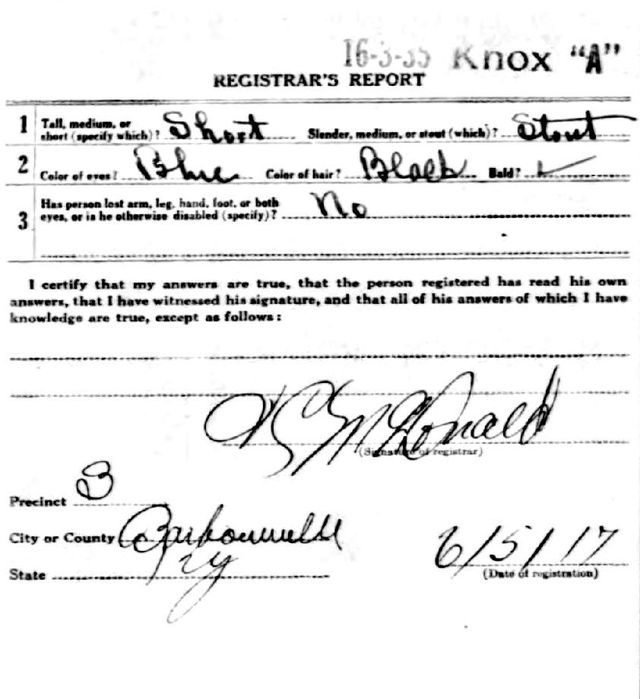 16-3-35 Knox "A"
REGISTRAR'S REPORT
1 Tall, medium, or short (specify which)? Short Slender, medium, or stout (which)? Stout
2 Color of eyes? Blue Color of hair? Black Bald?
3 Has person lost arm, leg, hand, foot, or both eyes, or is he otherwise disabled (specify)? No
I certify that my answers are true, that the person registered has read his own
answers, that I have witnessed his signature, and that all of his answers of which I have
knowledge are true, except as follows:
McDonald
(Signature of registrar)
Precinct 3
City or County Barbourville
State Ky
6/5/17
(Date of registration)